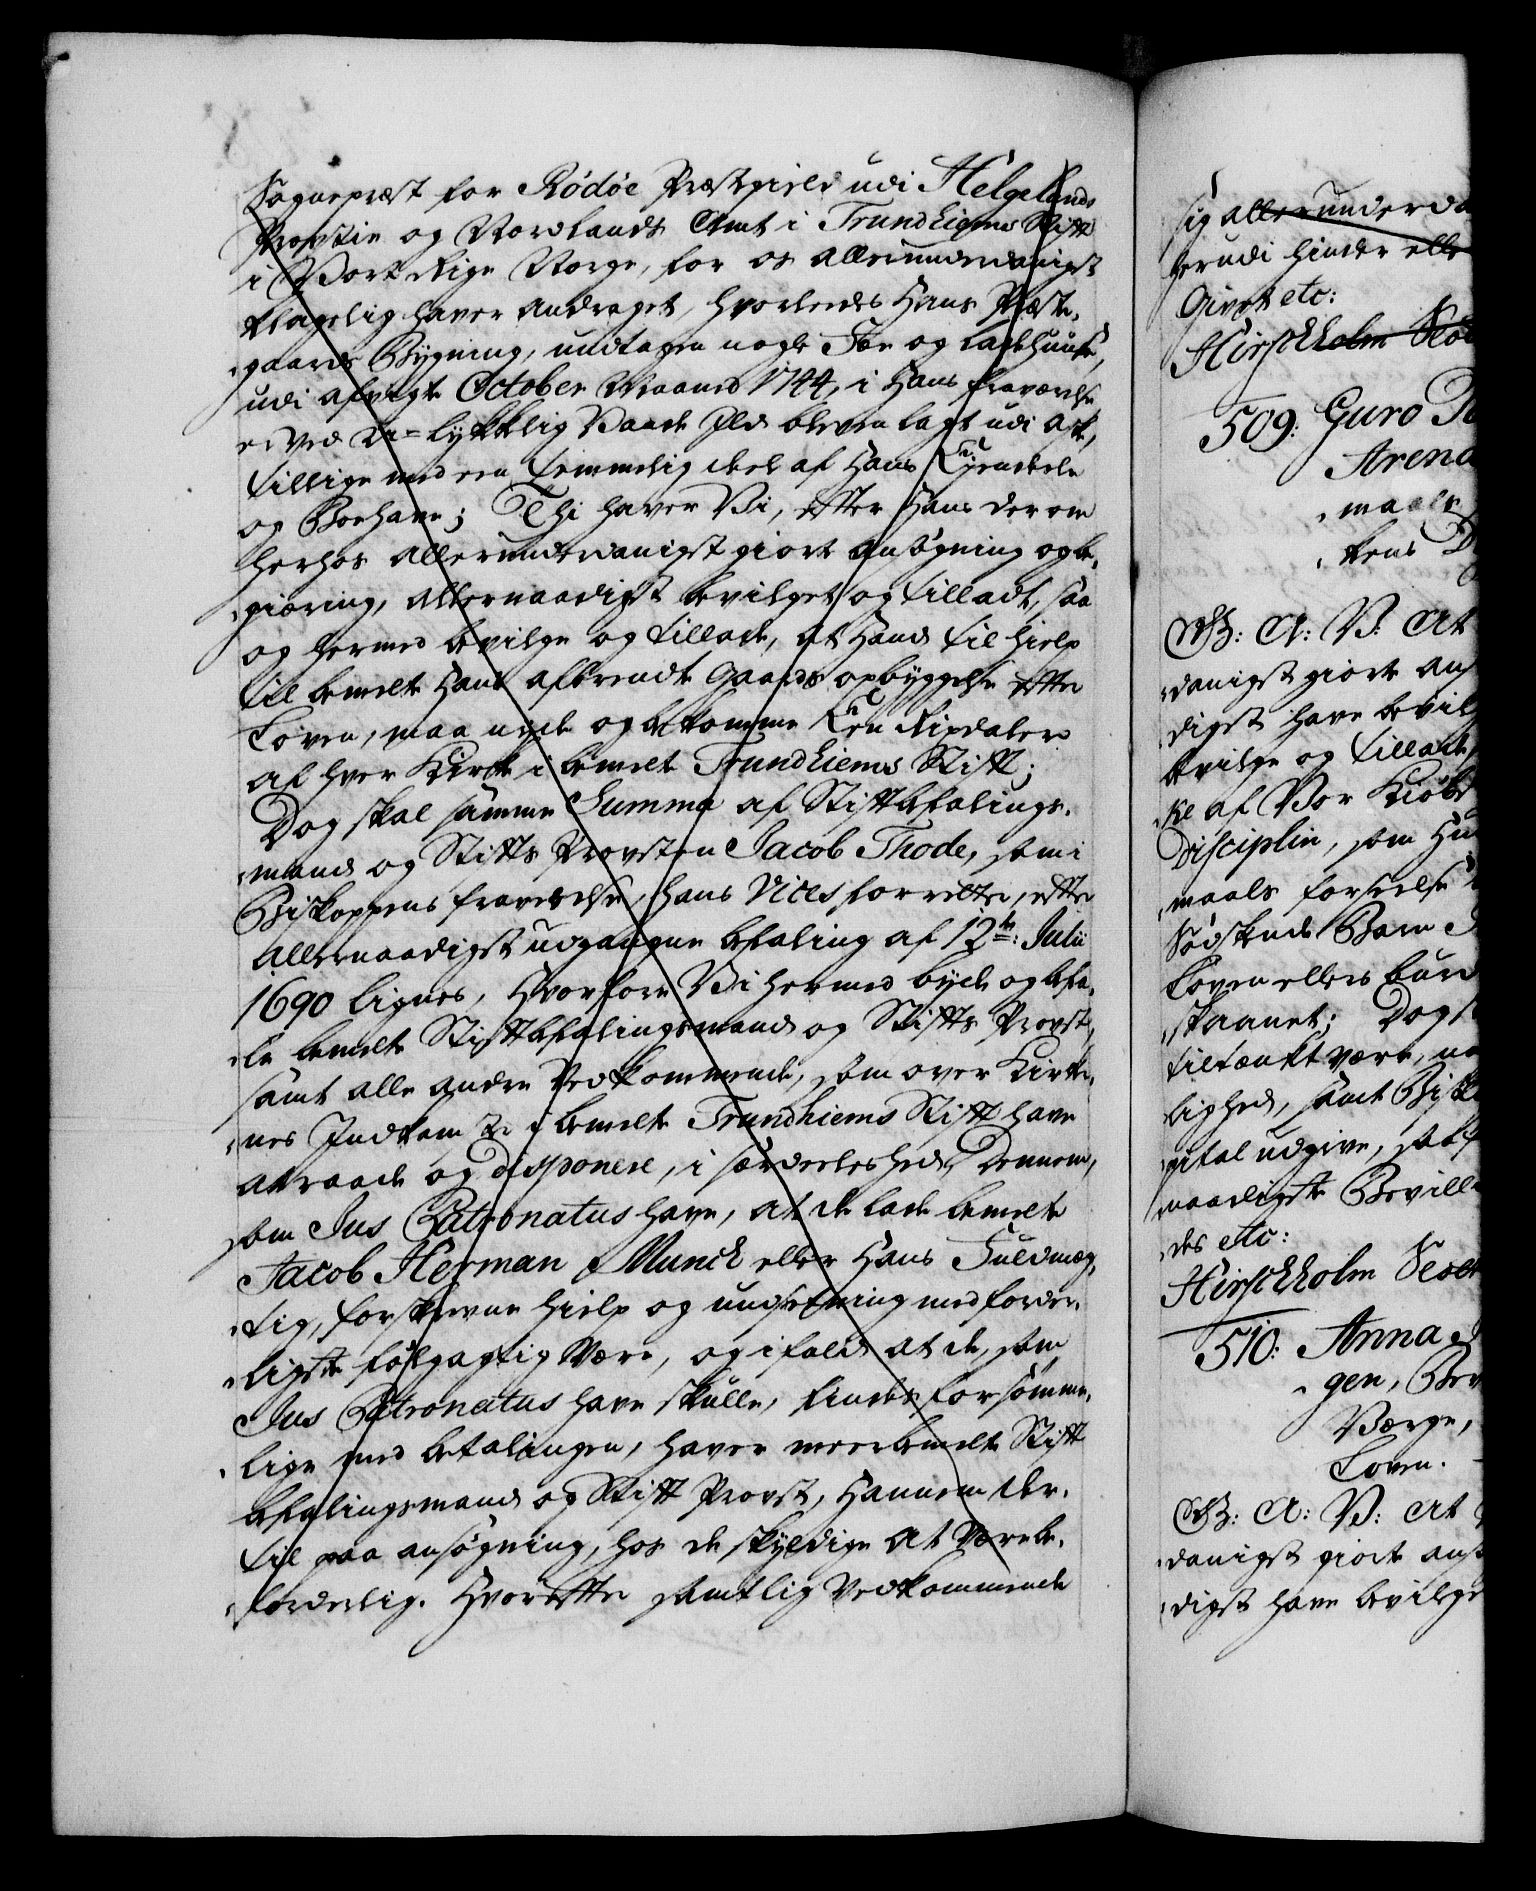 Sognepræst for Rödöe Præstegield udi Helgelands
Provstie og Nordlands Amt i Trundhiems Stift
i Vort Rige Norge, for os allerunderdanigst
klagelig haver andraget, hvorledes Hans Præste-
gaards Bygning, undtagen nogleFöe og Ladehuuse,
udi afvigte October Maaned 1744, i Hans fraværelse
er ved U-lykkelig Vaade Ild bleven lagt udi Ask,
tillige med een temmelig deel af Hans Eyendeele
og Boehave; Thi haver Vi, efter Hans derom
herhos allerunderdanigst giort ansøgning og be-
giæring, allernaadigst bevilget og tilladt, saa
og hermed bevilge og tillade, at Hand til hielp
til bemelte Hans afbrendte Gaards opbyggelse efter
Loven, maa nyde og bekomme Een Rixdaler
af hver Kirke i bemelte Trundhiems Stift;
Dog skal samme Summa af Stiftbefalings-
mand og Stifts Provsten Jacob Thode, som i
Biskoppens fraværelse, hans Vices forretter, efter
allernaadigst udgangne befaling af 12te: Julii
1690 lignes, Hvorfore Vi hermed byde og befa-
le bemelte Stiftbefalingsmand og Stifts Provst,
samt alle andre Vedkommende, som over Kirker-
nes Indkomster i bemelte Trundhiems Stift have
at raade og disponere, i særdeeleshed Dennem,
som Jus Patronatus have, at de lade bemelte
Jacob Herman Munch eller Hans Fuldmæg-
tig, forskrevne hielp og undsetning med forder-
ligste følgagtig være, og ifald at de, som
Jus Patronatus have skulle, findes forsømme-
lige med betalingen, haver meerbemelte Stift
befalingsmand og Stift Provst, Hannem der-
til paa ansøgning, hos de skyldige at være be-
forderlig. Hvorefter samtlig Vedkommende
sig allerunderda
herudi hinder elle
Givet etc:
Hirschholm Slot
509: Guro
Arend
maals
tens
G: A: V: At
danigst giort ans
digst have bevilg
bevilge og tillade,
ke af Vor Kiøb
Disciplin, som Hu
maals forseelse
Södskende Barn
Loven ellers burd
skaanet; Dog s
tiltænkt være, na
lighed, samt Bisk
pital udgive, saa
naadigste Bevill
des etc:
Hirschholm Slot
510: Anna
gen, Bev
Værge,
Loven.
G: A: V: At
danigst giort ans
digst have bevilge